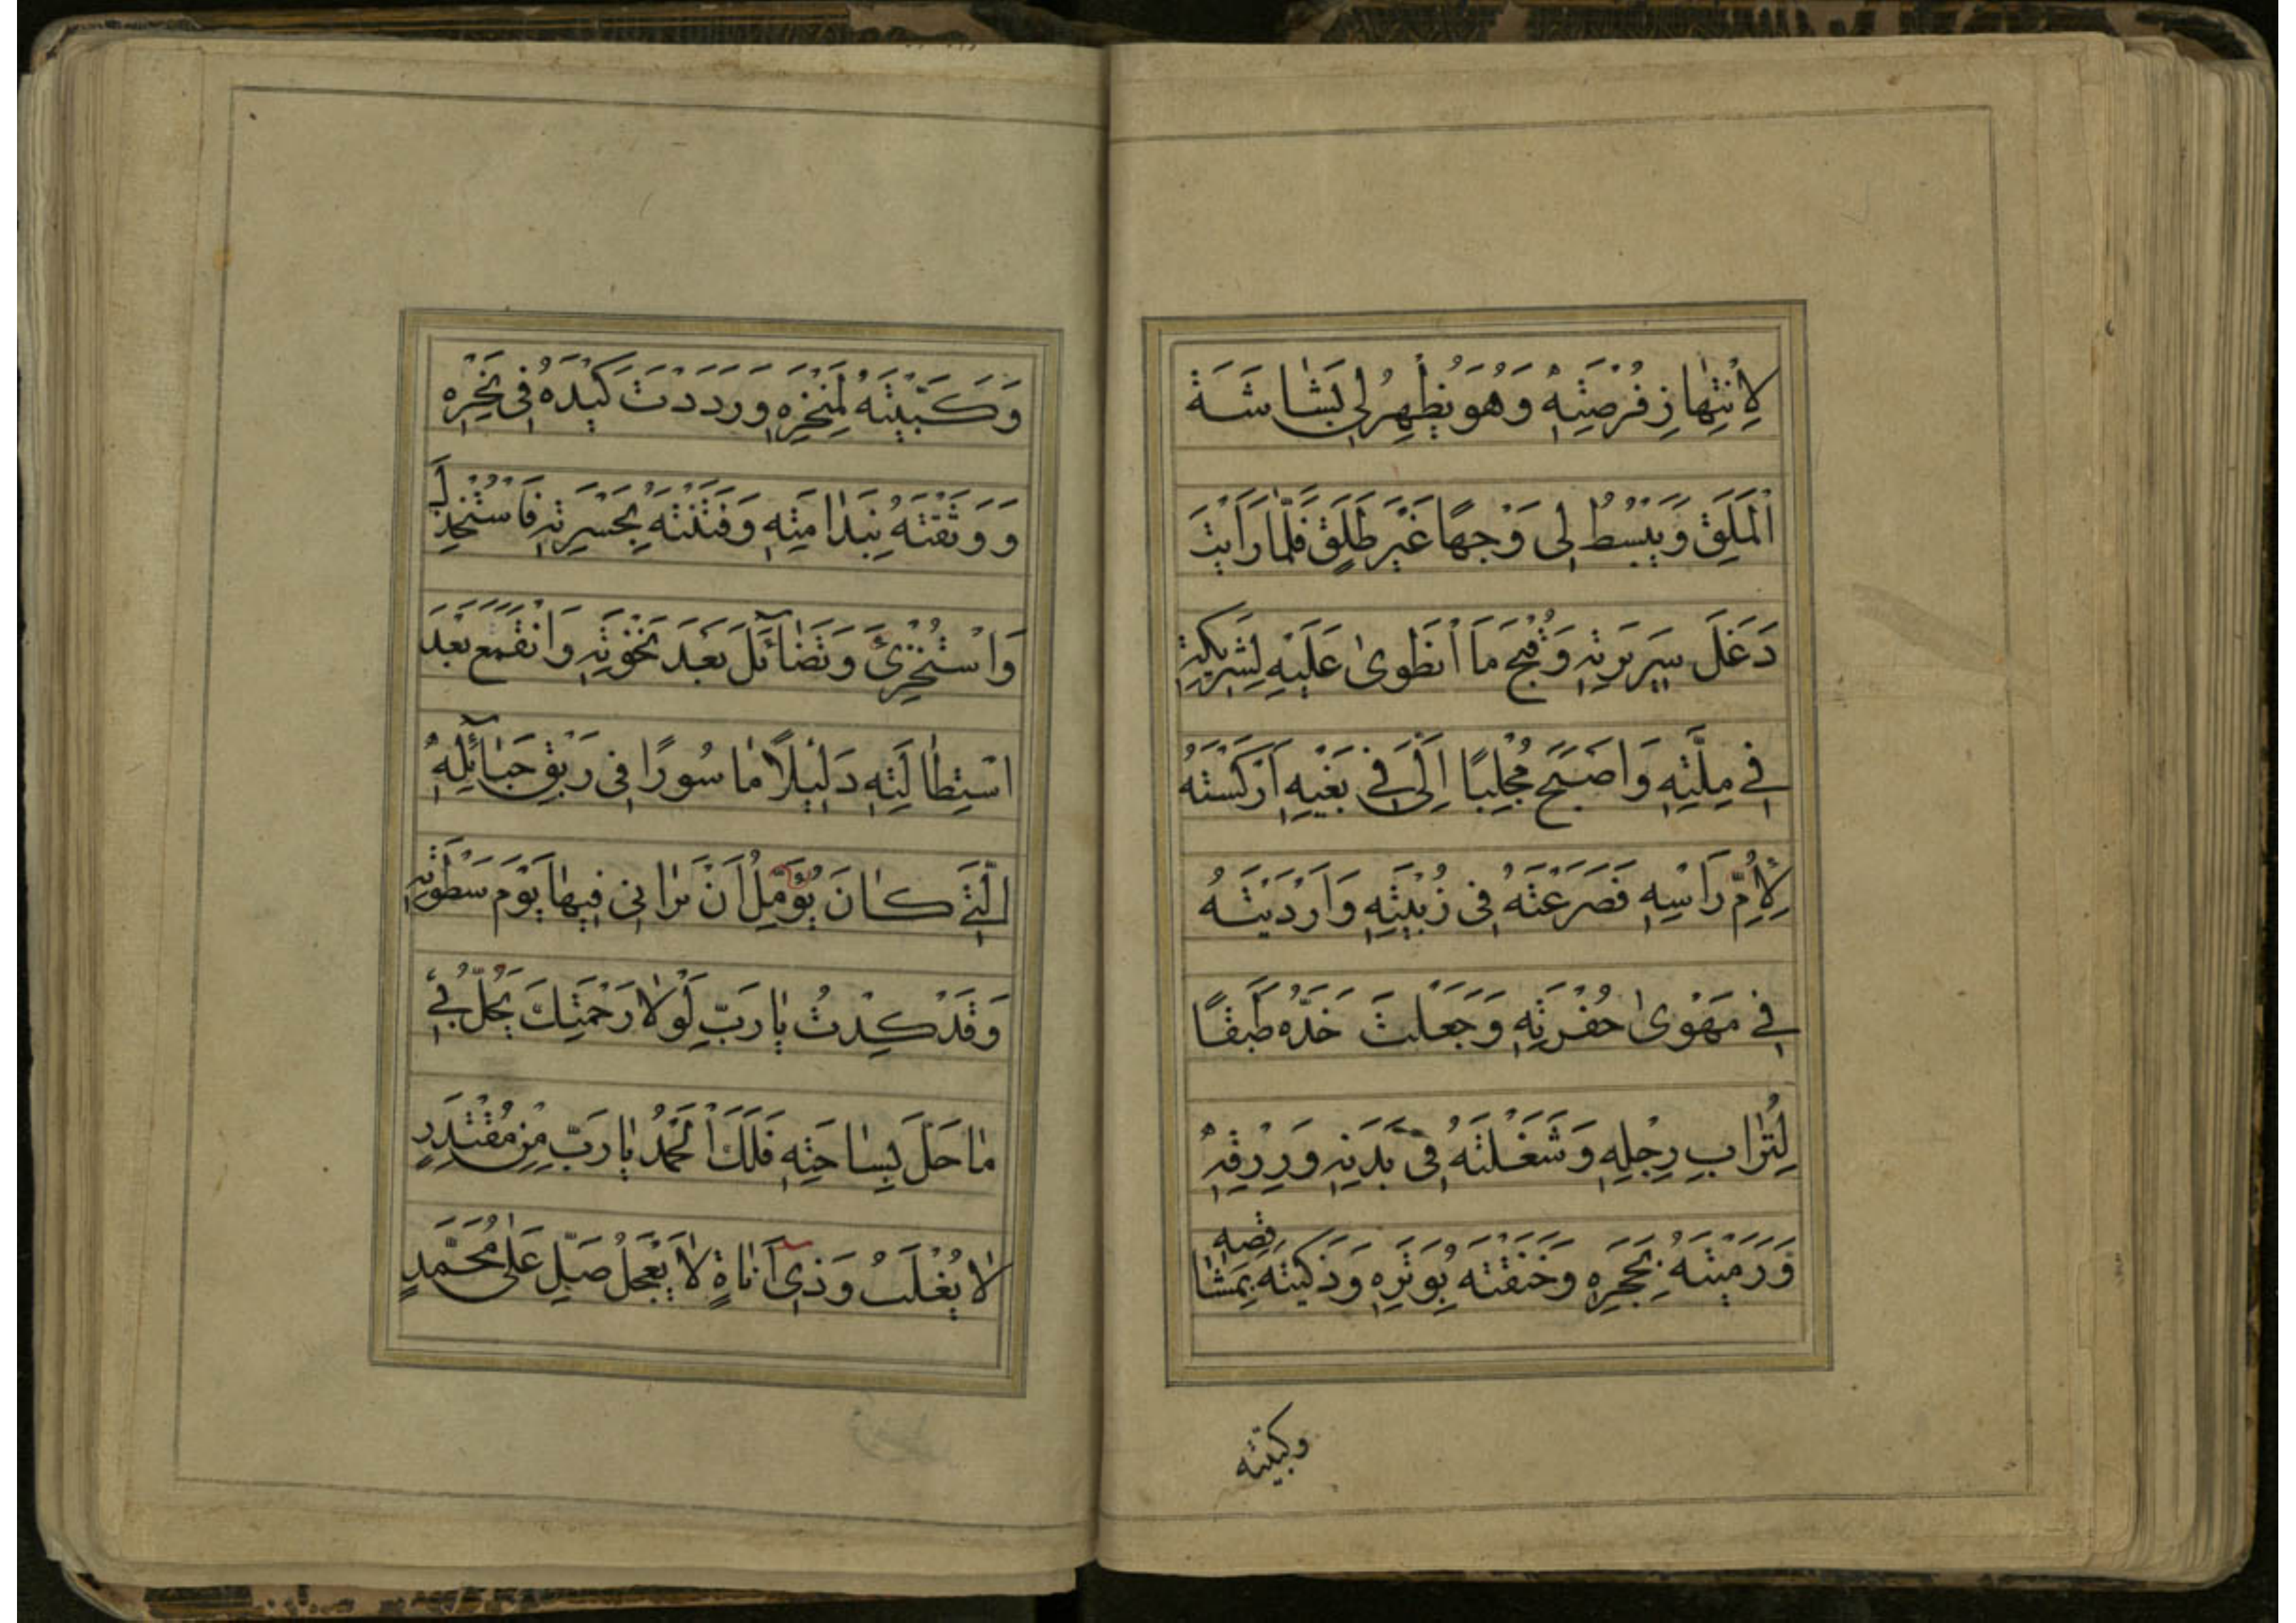 لِاِنْتِهٰازِ فُرْصَتِهٖ وَهُوَ يُظْهِرُ لِي بَشٰاشَةَ
الْمَلَقِ وَيَبْسُطُ لِى وَجْهًا غَيْرَ طَلِقٍ فَلَمّٰا رَاَيْتَ
دَغَلَ سَرِيرَتِهٖ وَقُبْحَ مَا انْطَوىٰ عَلَيْهِ لِشَرِيكِهٖ
فِي مِلَّتِهٖ وَاَصْبَحَ مُجْلِبًا اِلَىَّ فِي بَغْيِهٖ اَرْكَسْتَهُ
لِاُمِّ رَاْسِهٖ فَصَرَعْتَهُ فِى زُبْيَتِهٖ وَاَرْدَيْتَهُ
فِي مَهْوىٰ حُفْرَتِهٖ وَجَعَلْتَ خَدَّهُ طَبَقًا
لِتُرٰابِ رِجْلِهٖ وَشَغَلْتَهُ فِى بَدَنِهٖ وَرِزْقِهٖ
وَرَمَيْتَهُ بِحَجَرِهٖ وَخَنَقْتَهُ بِوَتَرِهٖ وَذَكَّيْتَهُ بِمَشٰاقِصِهٖ
وكببته
وَكَبَبْتَهُ لِمَنْخِرِهٖ وَرَدَدْتَ كَيْدَهُ فِى نَحْرِهٖ
وَوَثَقْتَهُ بِنَدٰامَتِهٖ وَفَتَنْتَهُ بِحَسْرَتِهٖ فَاسْتَخْذَلَ
وَاسْتَخْزىٰٔ وَتَضٰائَلَ بَعْدَ نَخْوَتِهٖ وَانْقَمَعَ بَعْدَ
اسْتِطٰالَتِهٖ دَلِيْلًا مٰاسُورًا فِى رَبْقِ حَبٰائِلِهٖ
الَّتِي كٰانَ يُؤَمِّلُ اَنْ يَرٰانِى فِيهٰا يَوْمَ سَطْوَتِهٖ
وَقَدْ كِدْتُ يٰا رَبِّ لَوْلٰا رَحْمَتِكَ يَحُلُّ بِي
مٰا حَلَّ بِسٰاحَتِهٖ فَلَكَ الْحَمْدُ يٰا رَبِّ مِنْ مُقْتَدِرٍ
لٰا يُغْلَبُ وَذِي اَنٰاةٍ لٰا يَعْجَلُ صَلِّ عَلىٰ مُحَمَّدٍ